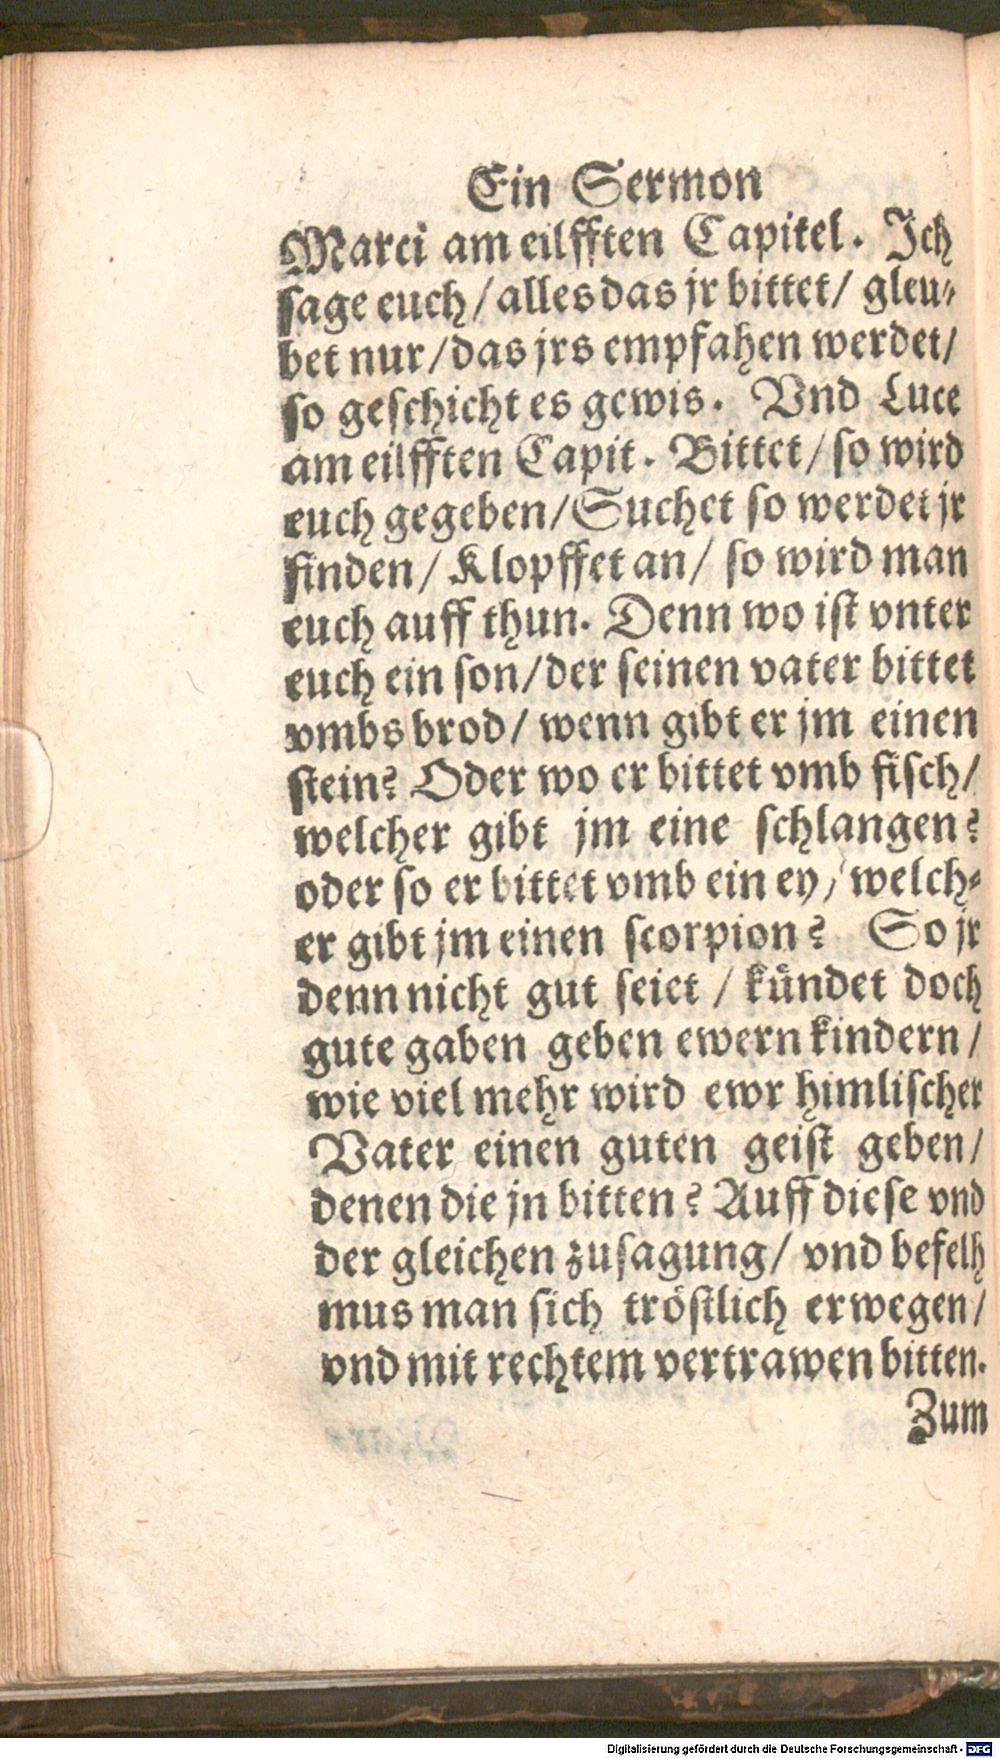 Ein Sermon
Marci am eilfften Capitel. Ich
sage euch / alles das jr bittet / gleu-
bet nur / das jrs empfahen werdet /
so geschicht es gewis. Vnd Luce
am eilfften Capit. Bittet / so wird
euch gegeben / Suchet so werdet jr
finden / Klopffet an / so wird man
euch auff thun. Denn wo ist vnter
euch ein son / der seinen vater bittet
vmbs brod / wenn gibt er jm einen
stein? Oder wo er bittet vmb fisch /
welcher gibt jm eine schlangen?
oder so er bittet vmb ein ey / welch-
er gibt jm einen scorpion? So jr
denn nicht gut seiet / kündet doch
gute gaben geben ewern kindern /
wie viel mehr wird ewr himlischer
Vater einen guten geist geben /
denen die jn bitten? Auff diese vnd
der gleichen zusagung / vnd befelh
mus man sich tröstlich erwegen /
vnd mit rechtem vertrawen bitten.
Zum
Digitalisierung gefördert durch die Deutsche Forschungsgemeinschaft - DFG